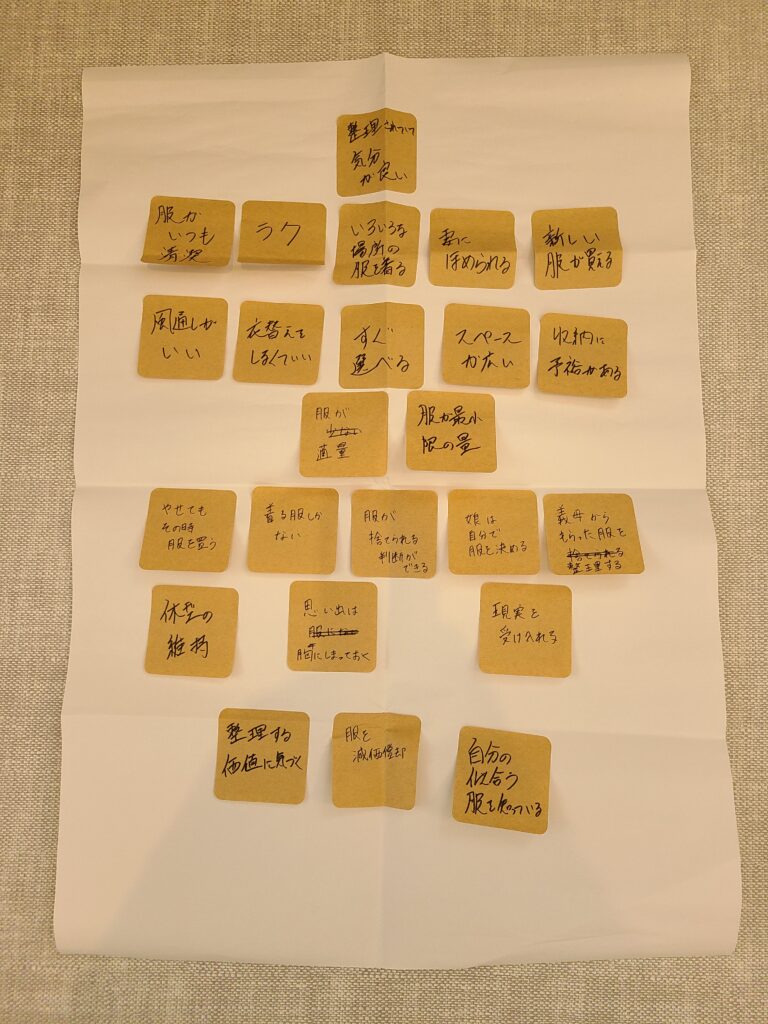 整理されていて
気分
が良い
服が
いつも
清潔
ラク
いろいろな
場所の
服を着る
妻に
ほめられる
新しい
服が買える
風通しが
いい
衣替えを
しなくていい
すぐ
選べる
スペース
が広い
収納に
余裕がある
服が
少ない
適量
服が最小
限の量
やせても
その時
服を買う
着る服しか
ない
服が
捨てられる
判断が
できる
娘は
自分で
服を決める
義母から
もらった服を
捨てられる
整理する
体型の
維持
思い出は
胸にしまっておく
現実を
受け入れる
整理する
価値に気づく
服を
減価償却
自分の
似合う
服を知っている